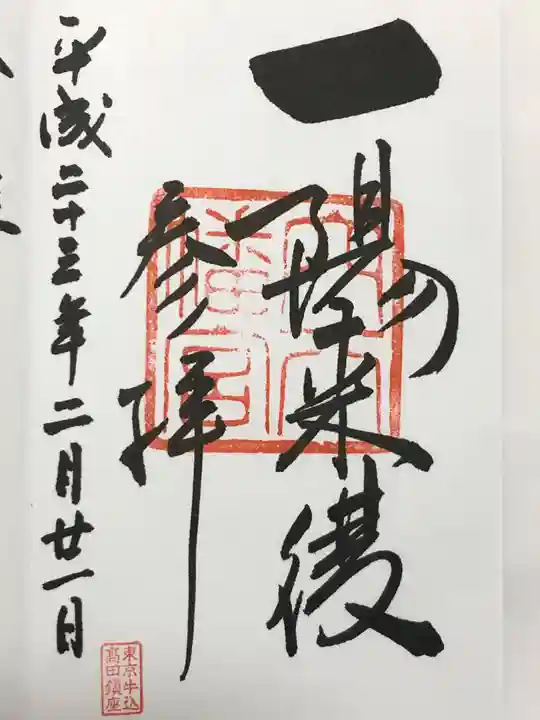 一陽来復
参拝
穴八
幡宮
平成二十三年二月廿一日
東京牛込
髙田鎮座